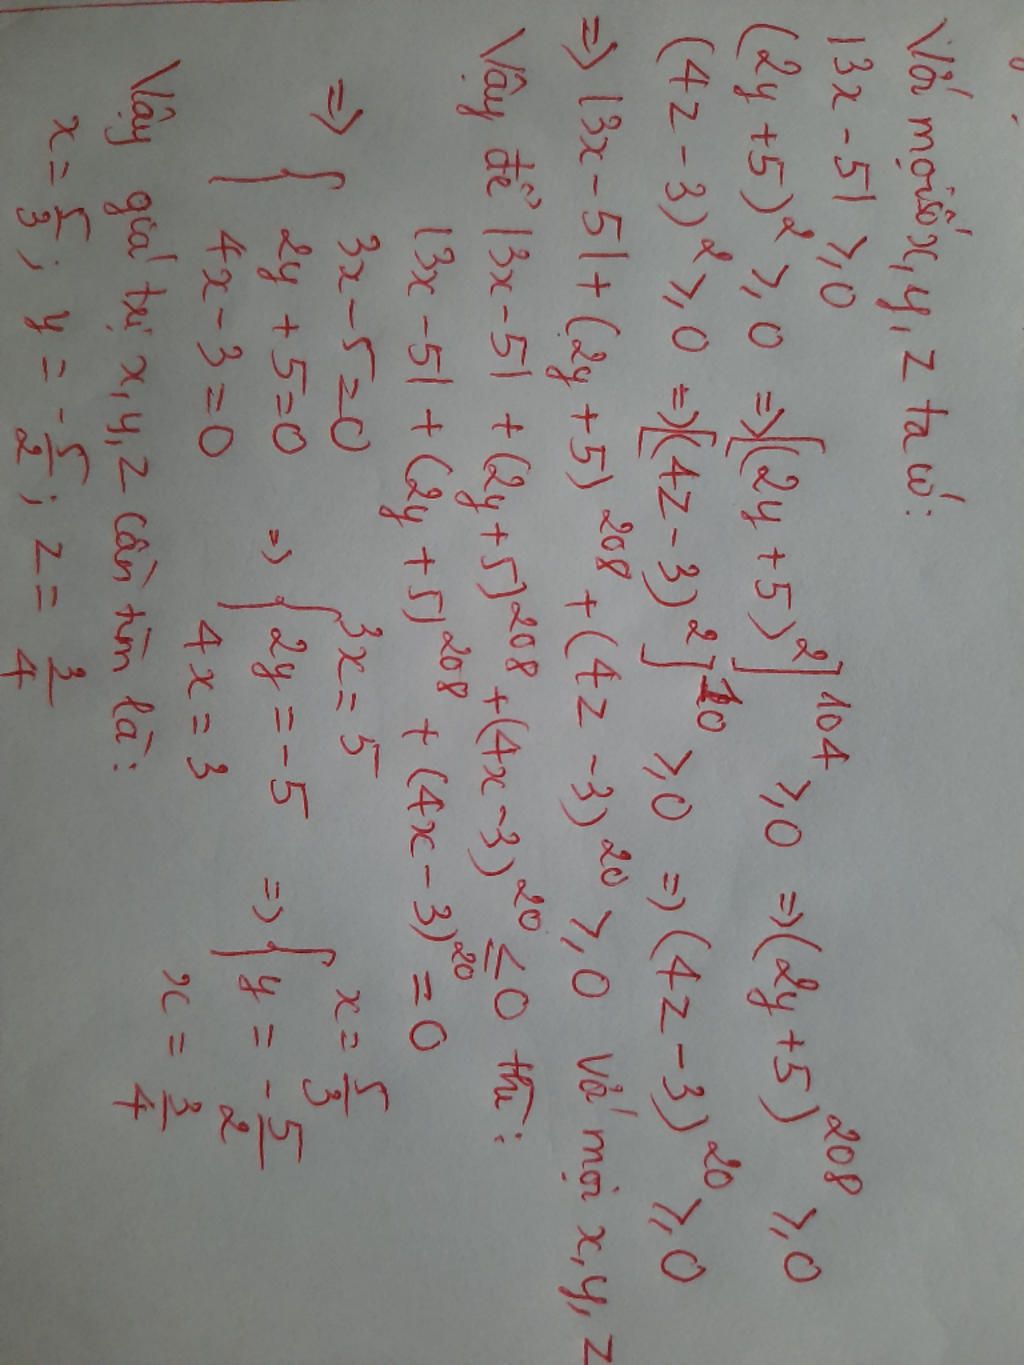 Với mọi số x, y, z ta có:
|3x - 5| ≥ 0
(2y + 5)² ≥ 0 => [(2y + 5)²]¹⁰⁴ ≥ 0 => (2y + 5)²⁰⁸ ≥ 0
(4z - 3)² ≥ 0 => [(4z - 3)²]¹⁰ ≥ 0 => (4z - 3)²⁰ ≥ 0
=> |3x - 5| + (2y + 5)²⁰⁸ + (4z - 3)²⁰ ≥ 0 với mọi x, y, z
Vậy để |3x - 5| + (2y + 5)²⁰⁸ + (4x - 3)²⁰ ≤ 0 thì:
|3x - 5| + (2y + 5)²⁰⁸ + (4x - 3)²⁰ = 0
=> { 3x - 5 = 0 => { 3x = 5 => { x = 5/3
2y + 5 = 0 2y = -5 y = -5/2
4x - 3 = 0 4x = 3 x = 3/4
Vậy giá trị x, y, z cần tìm là:
x = 5/3; y = -5/2; z = 3/4